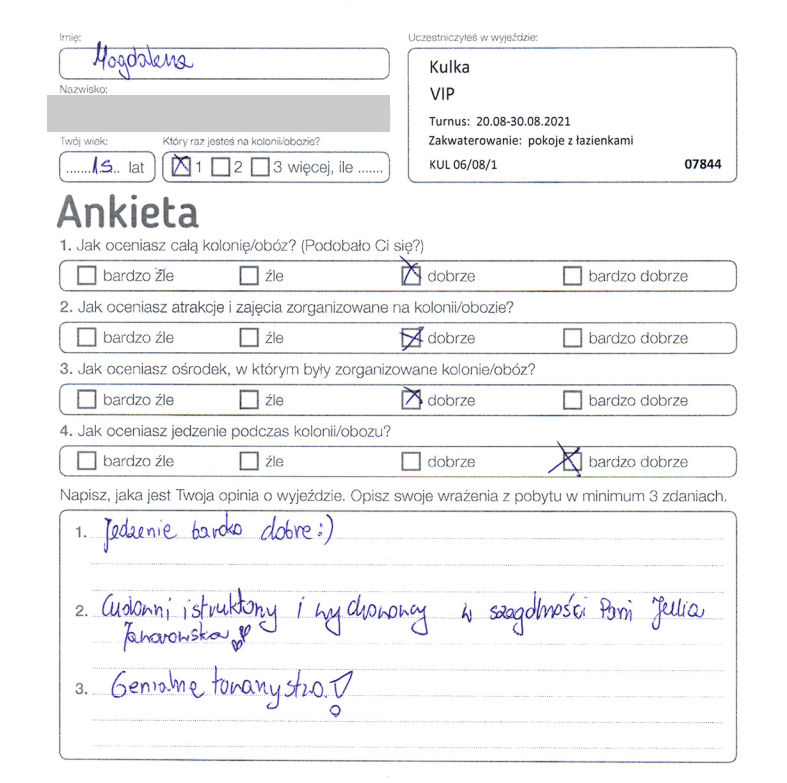 Imię:
Magdalena
Uczestniczyłeś w wyjeździe:
Kulka
VIP
Turnus: 20.08-30.08.2021
Zakwaterowanie: pokoje z łazienkami
KUL 06/08/1 07844
Nazwisko:
Twój wiek: Który raz jesteś na kolonii/obozie?
.......15.. lat 1 2 3 więcej, ile .......
Ankieta
1. Jak oceniasz całą kolonię/obóz? (Podobało Ci się?)
bardzo źle źle dobrze bardzo dobrze
2. Jak oceniasz atrakcje i zajęcia zorganizowane na kolonii/obozie?
bardzo źle źle dobrze bardzo dobrze
3. Jak oceniasz ośrodek, w którym były zorganizowane kolonie/obóz?
bardzo źle źle dobrze bardzo dobrze
4. Jak oceniasz jedzenie podczas kolonii/obozu?
bardzo źle źle dobrze bardzo dobrze
Napisz, jaka jest Twoja opinia o wyjeździe. Opisz swoje wrażenia z pobytu w minimum 3 zdaniach.
1. Jedzenie bardzo dobre :)
2. Cudowni istruktorzy i wychowawcy w szczególności Pani Julia
3. Genialne towarzystwo!